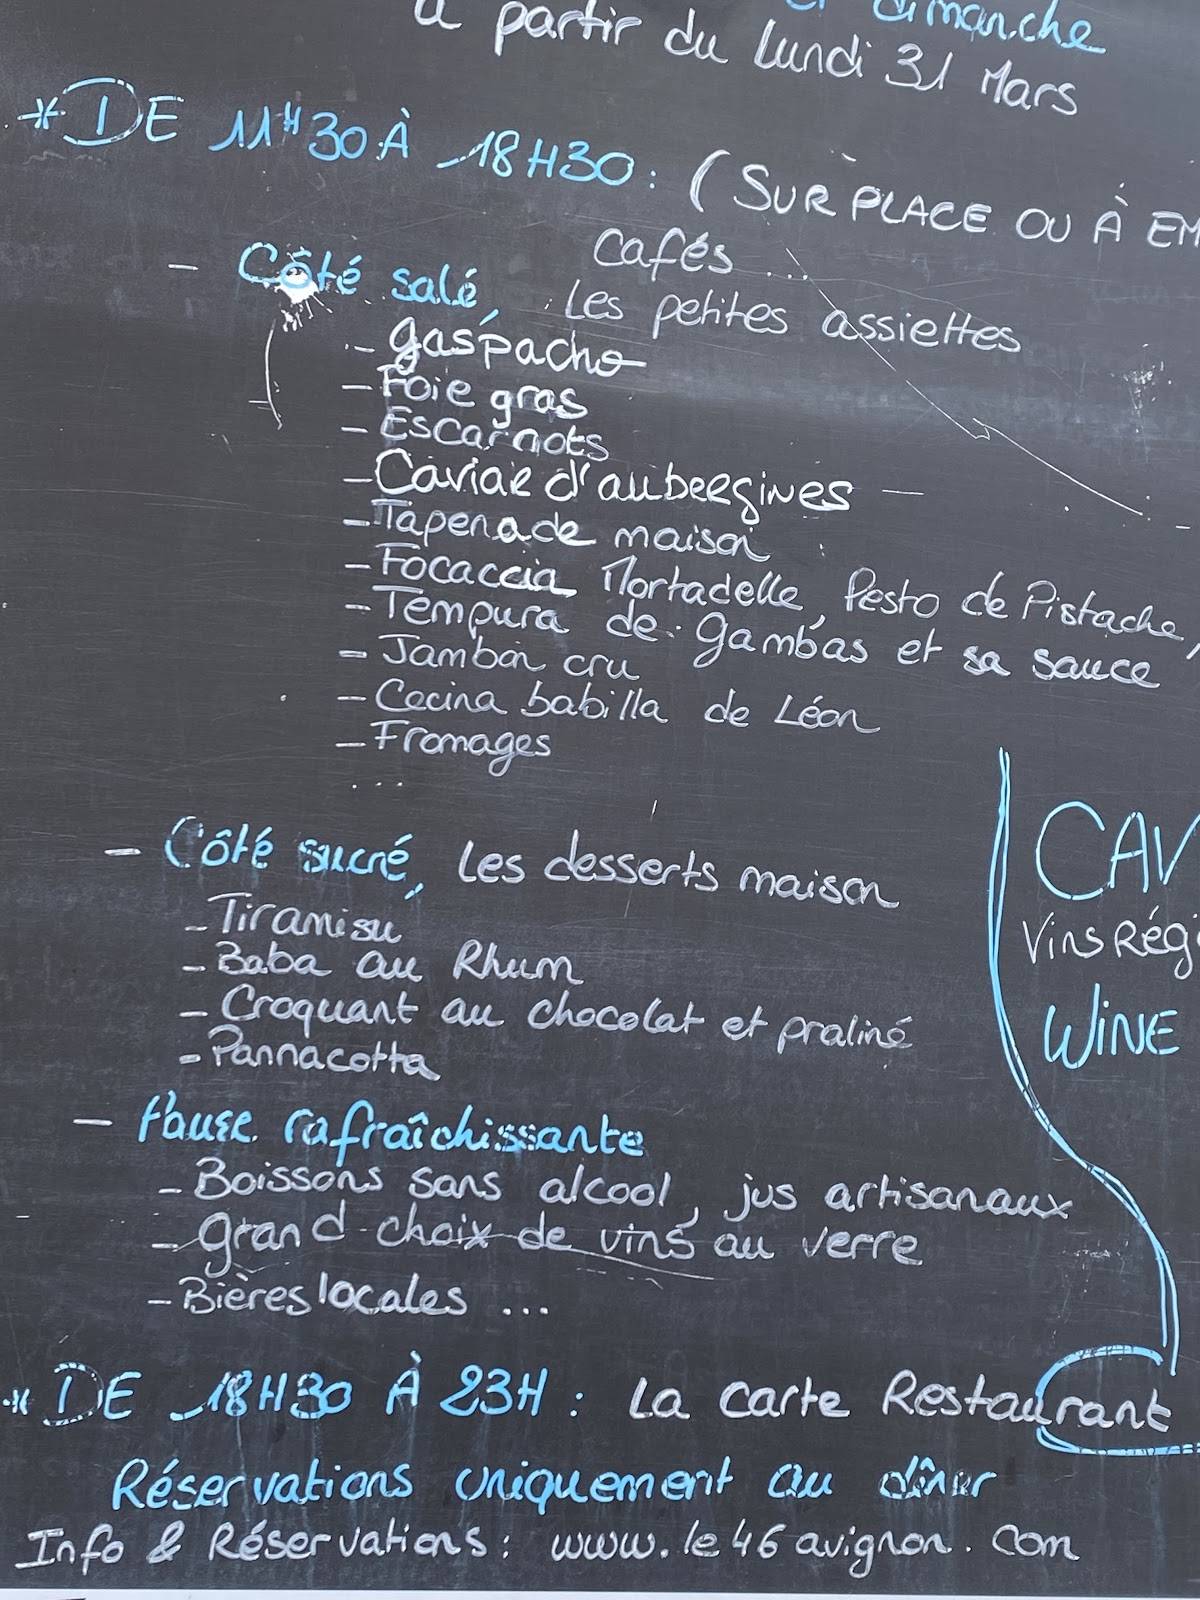 dimanche
à partir du lundi 31 Mars
* DE 11H30 À 18H30 : (SUR PLACE OU À EM
Cafés ...
- Côté salé, Les petites assiettes
- gaspacho
- Foie gras
- Escargots
- Caviar d'aubergines -
- Tapenade maison
- Focaccia Mortadelle, Pesto de Pistache,
- Tempura de gambas et sa sauce
- Jambon cru
- Cecina babilla de Léon
- Fromages
...
- Côté sucré, Les desserts maison
- Tiramisu
- Baba au Rhum
- Croquant au chocolat et praliné
- Pannacotta
- Pause rafraîchissante
- Boissons sans alcool, jus artisanaux
- Grand choix de vins au verre
- Bières locales ...
CAV
Vins Régi
WINE
* DE 18H30 À 23H : La carte Restaurant
Réservations uniquement au dîner
Info & Réservations : www.le46avignon.com